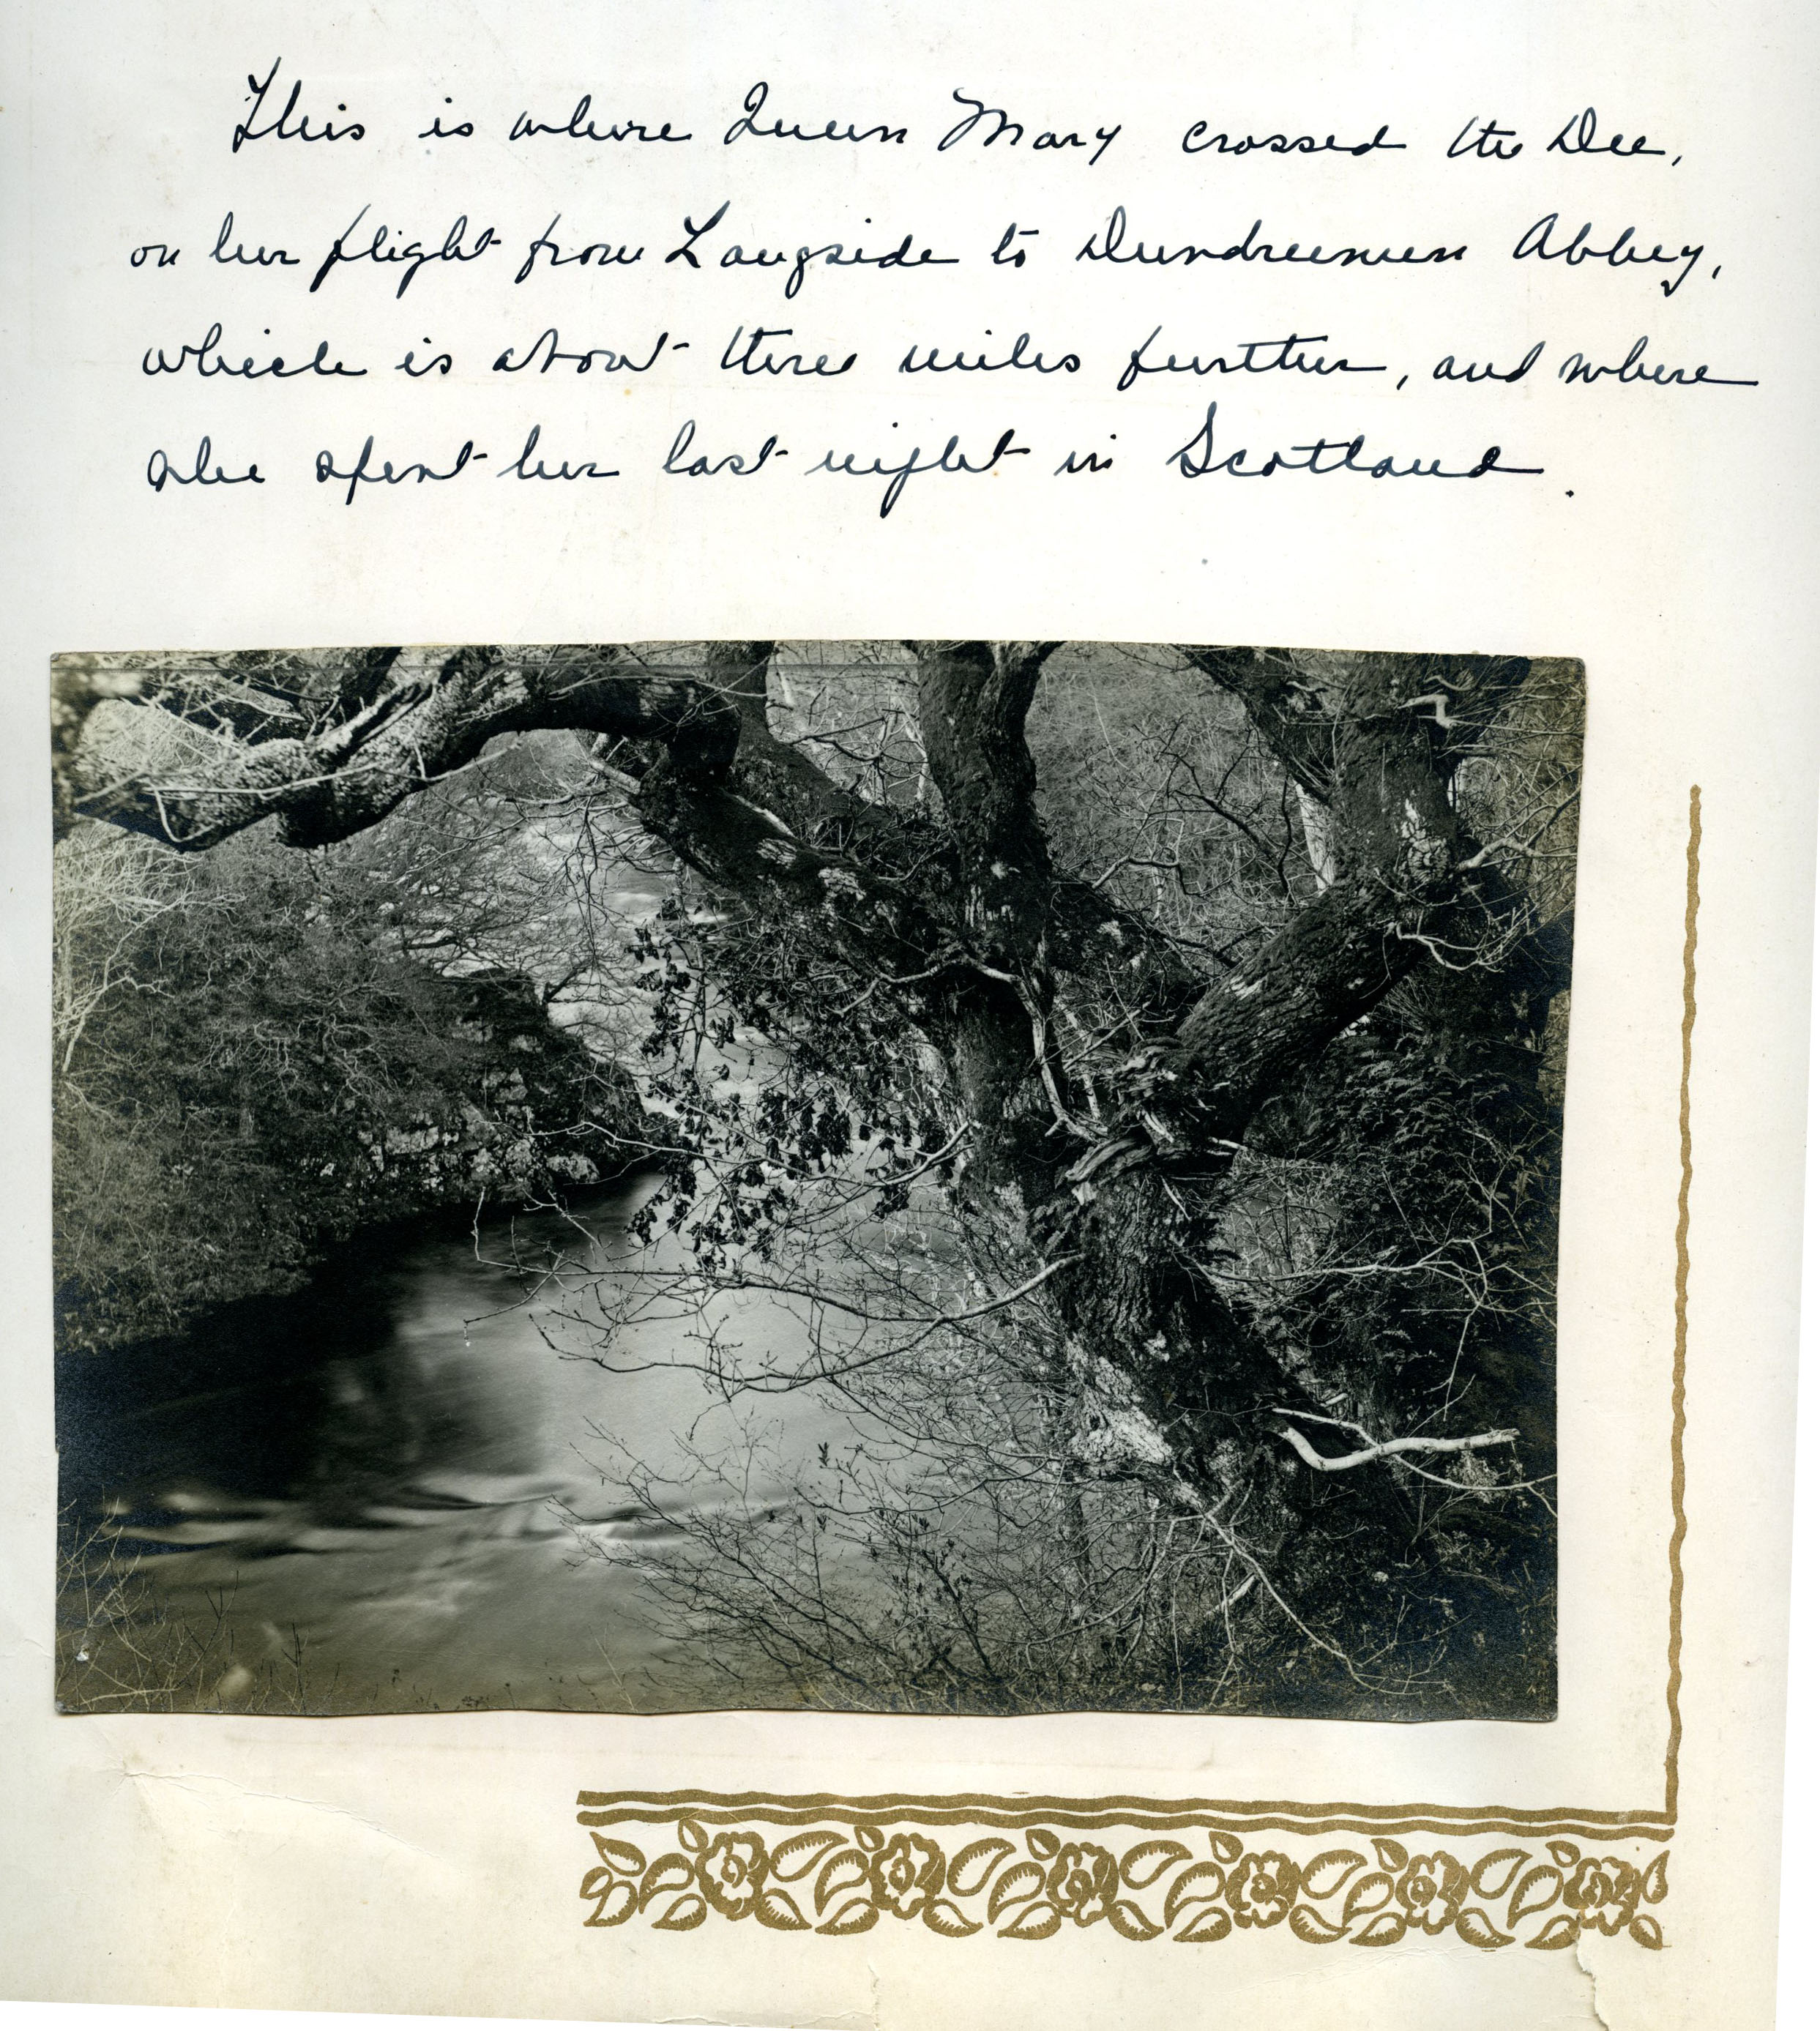 This is where Queen Mary crossed the Dee,
on her flight from Langside to Dundrennen Abbey,
which is about three miles further, and where
she spent her last night in Scotland.